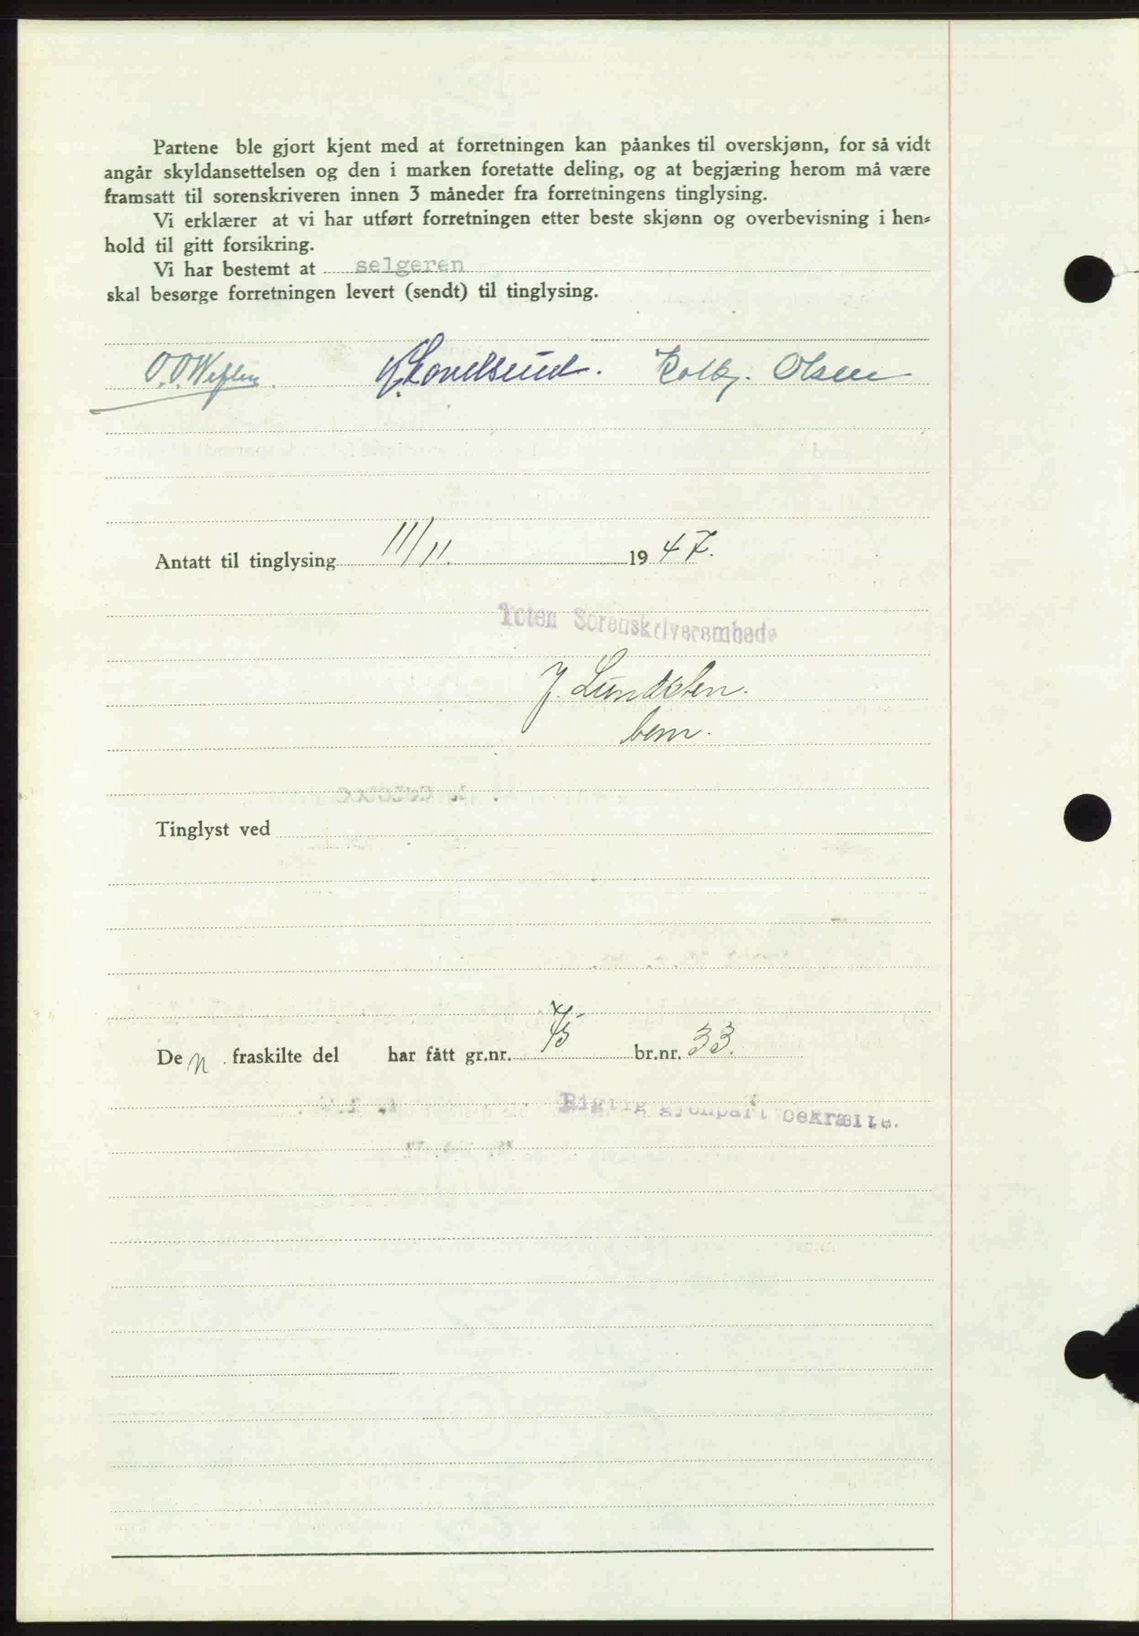 Partene ble gjort kjent med at forretningen kan påankes til overskjønn, for så vidt
angår skyldansettelsen og den i marken foretatte deling, og at begjæring herom må være
framsatt til sorenskriveren innen 3 måneder fra forretningens tinglysing.
Vi erklærer at vi har utført forretningen etter beste skjønn og overbevisning i hen-
hold til gitt forsikring.
Vi har bestemt at selgeren
skal besørge forretningen levert (sendt) til tinglysing.
Kolbj. Olsen
Antatt til tinglysing 11/11. 1947.
Toten Sorenskriverembede
J. Lundsten.
bem.
Tinglyst ved
Den fraskilte del har fått gr.nr. 45 br.nr. 33.
Rigtig gjenpart bekræftes.